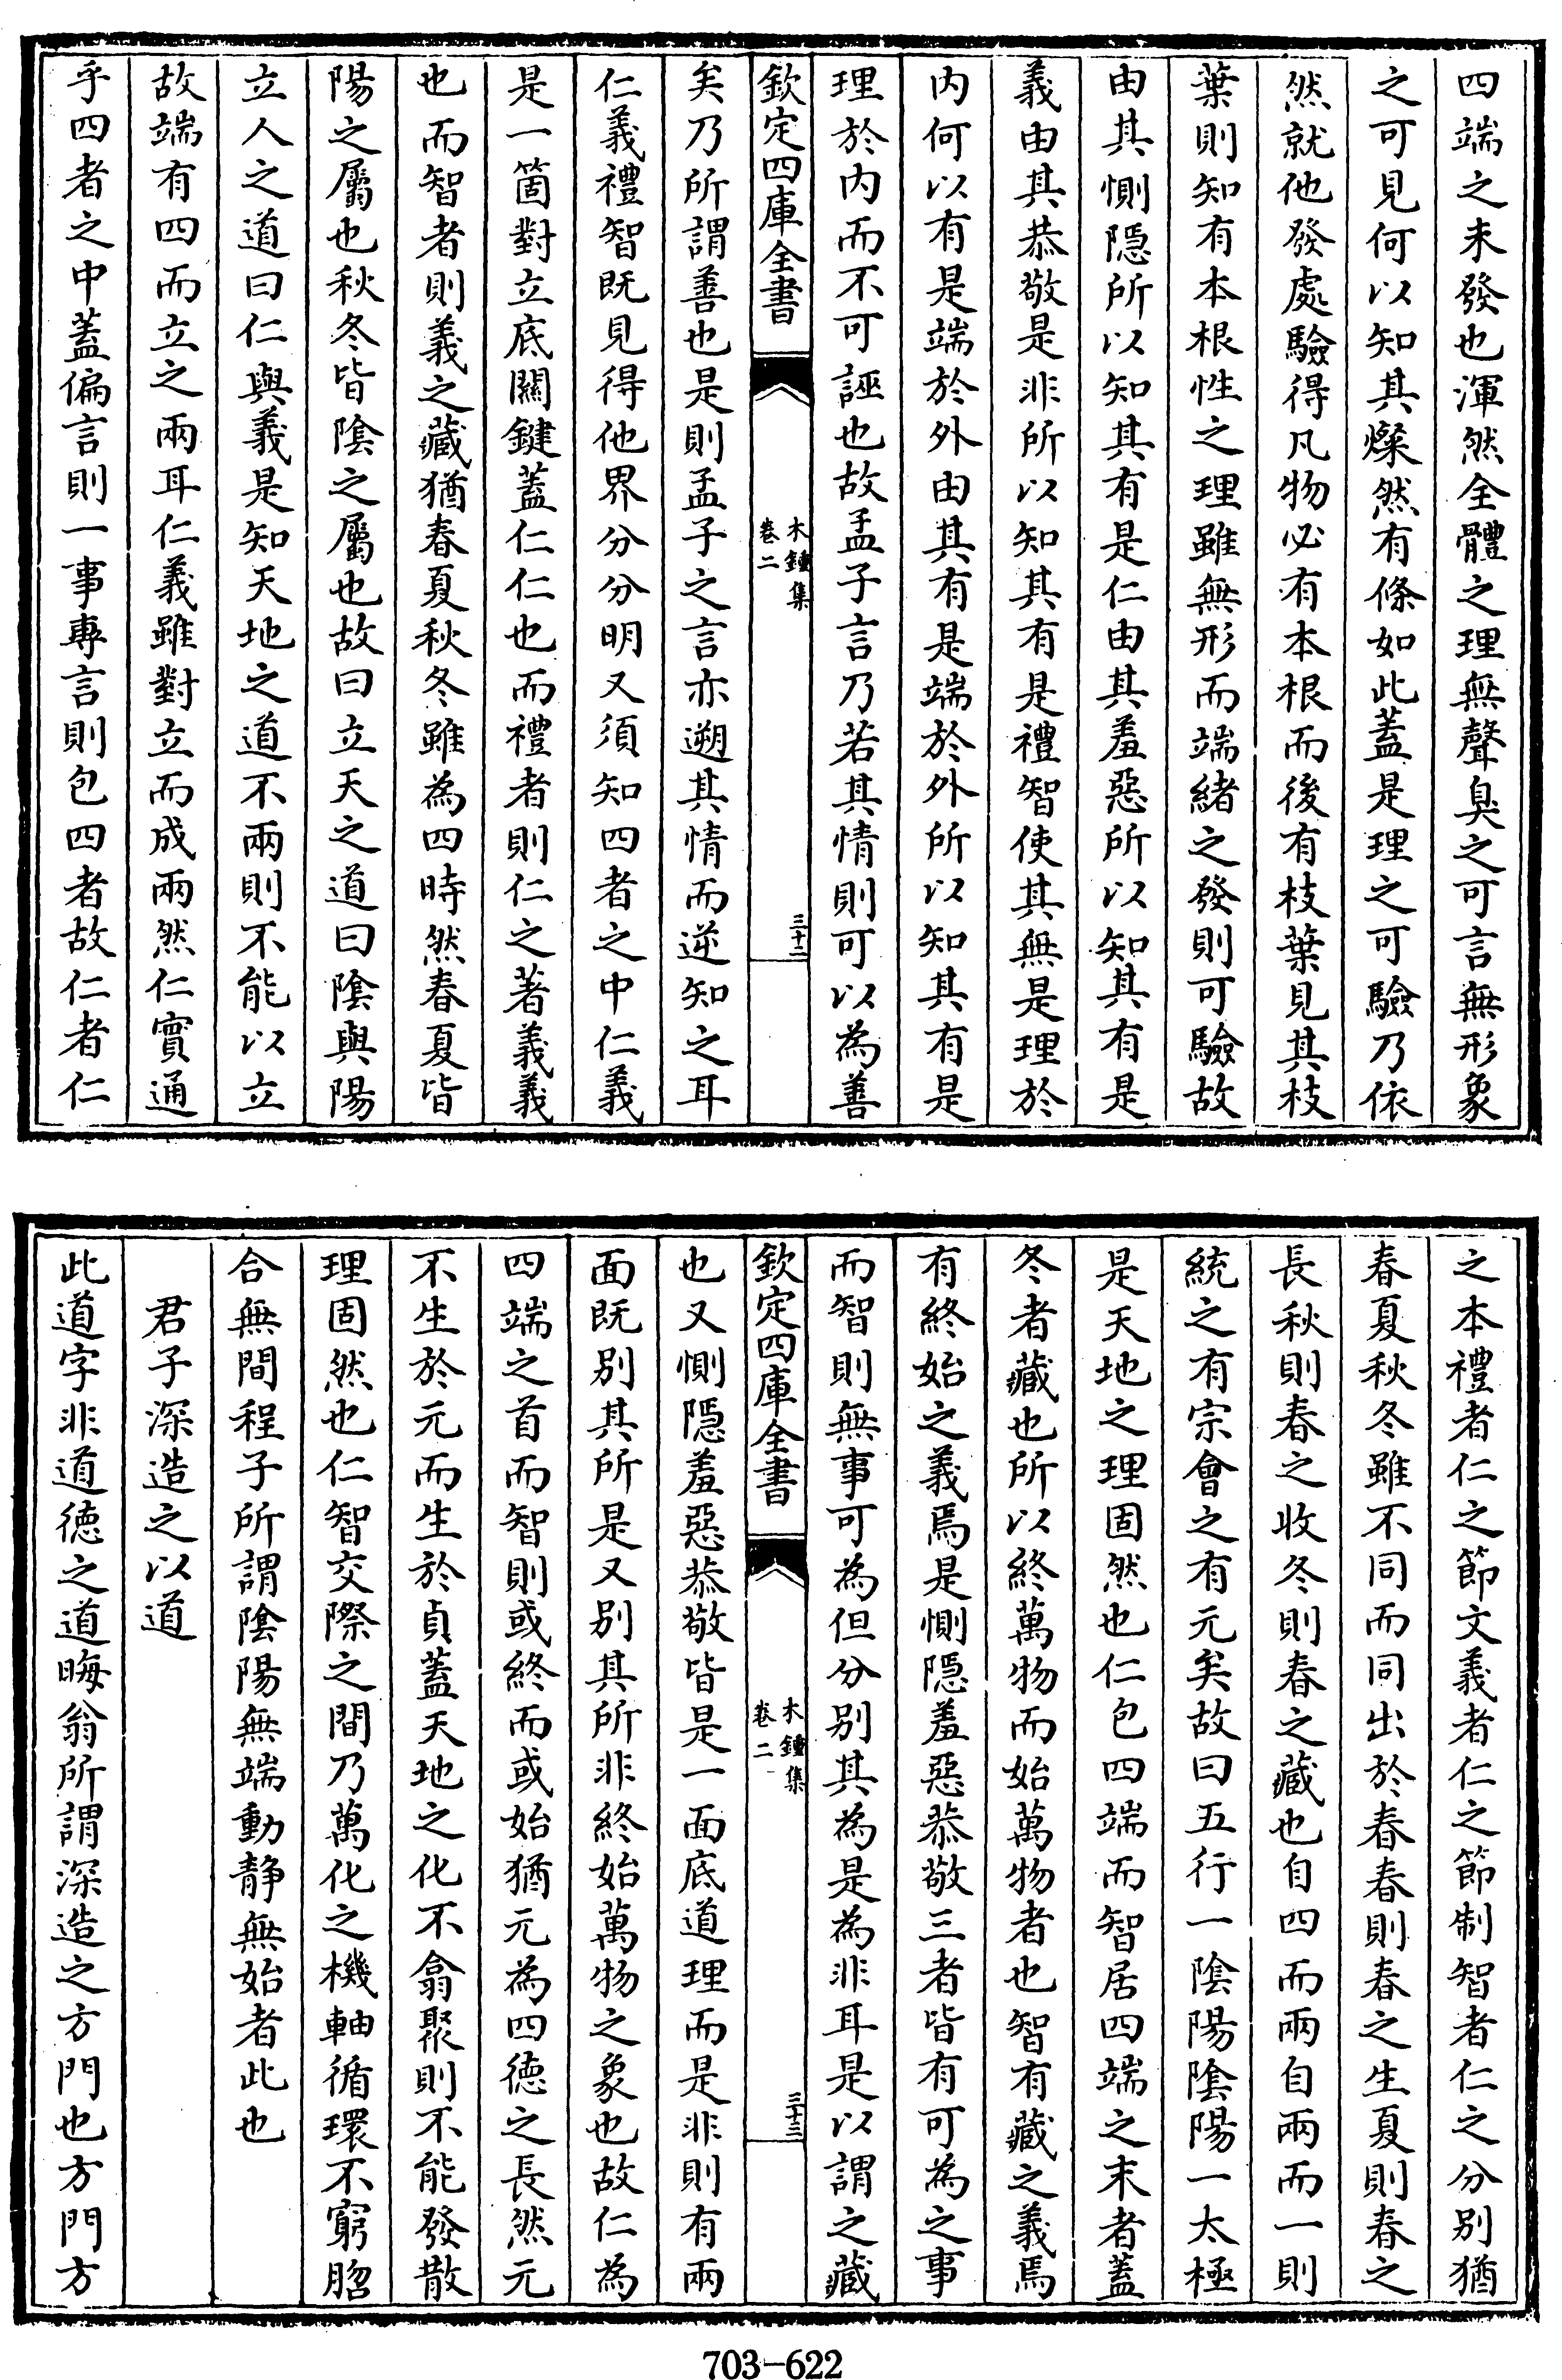 四端之未發也渾然全體之理無聲臭之可言無形象
之可見何以知其燦然有條如此蓋是理之可驗乃依
然就他發處驗得凡物必有本根而後有枝葉見其枝
葉則知有本根性之理雖無形而端緒之發則可驗故
由其惻隠所以知其有是仁由其羞惡所以知其有是
義由其恭敬是非所以知其有是禮智使其無是理於
内何以有是端於外由其有是端於外所以知其有是
理於内而不可誣也故孟子言乃若其情則可以為善
欽定四庫全書
木鍾集
卷二
三十二
矣乃所謂善也是則孟子之言亦遡其情而逆知之耳
仁義禮智既見得他界分分明又須知四者之中仁義
是一箇對立底關鍵蓋仁仁也而禮者則仁之著義義
也而智者則義之藏猶春夏秋冬雖為四時然春夏皆
陽之屬也秋冬皆隂之屬也故曰立天之道曰隂與陽
立人之道曰仁與義是知天地之道不兩則不能以立
故端有四而立之兩耳仁義雖對立而成兩然仁實通
乎四者之中蓋偏言則一事專言則包四者故仁者仁
之本禮者仁之節文義者仁之節制智者仁之分別猶
春夏秋冬雖不同而同出於春春則春之生夏則春之
長秋則春之收冬則春之藏也自四而兩自兩而一則
統之有宗會之有元矣故曰五行一隂陽隂陽一太極
是天地之理固然也仁包四端而智居四端之末者蓋
冬者藏也所以終萬物而始萬物者也智有藏之義焉
有終始之義焉是惻隠羞惡恭敬三者皆有可為之事
而智則無事可為但分別其為是為非耳是以謂之藏
欽定四庫全書
木鍾集
卷二
三十三
也又惻隠羞惡恭敬皆是一面底道理而是非則有兩
面既別其所是又別其所非終始萬物之象也故仁為
四端之首而智則或終而或始猶元為四徳之長然元
不生於元而生於貞蓋天地之化不翕聚則不能發散
理固然也仁智交際之間乃萬化之機軸循環不窮脗
合無間程子所謂隂陽無端動静無始者此也
君子深造之以道
此道字非道徳之道晦翁所謂深造之方門也方門方
703-622